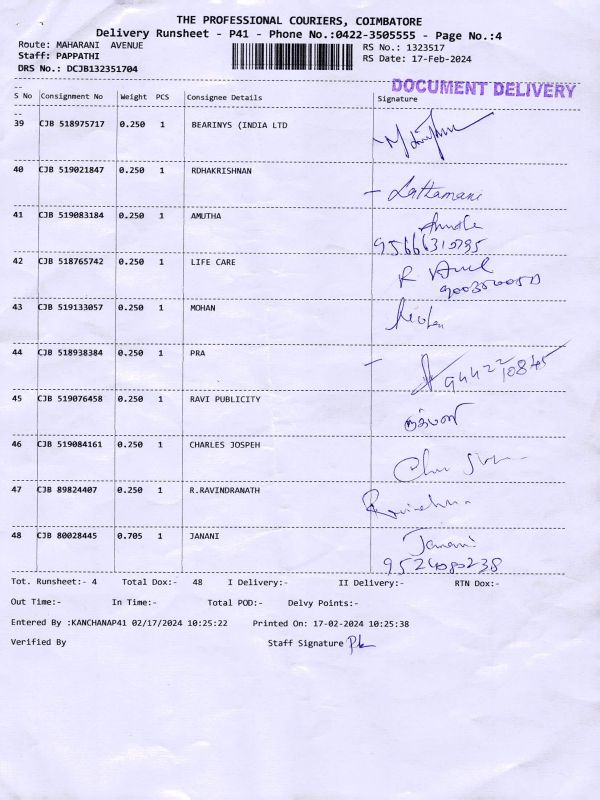 THE PROFESSIONAL COURIERS, COIMBATORE
Delivery Runsheet - P41 - Phone No.:0422-3505555 - Page No.:4
Route: MAHARANI AVENUE RS No.: 1323517
Staff: PAPPATHI RS Date: 17-Feb-2024
DRS No.: DCJB132351704
DOCUMENT DELIVERY
S No Consignment No Weight PCS Consignee Details Signature
39 CJB 518975717 0.250 1 BEARINYS (INDIA LTD
40 CJB 519021847 0.250 1 RDHAKRISHNAN Lathamani
41 CJB 519083184 0.250 1 AMUTHA
42 CJB 518765742 0.250 1 LIFE CARE
43 CJB 519133057 0.250 1 MOHAN
44 CJB 518938384 0.250 1 PRA
45 CJB 519076458 0.250 1 RAVI PUBLICITY
46 CJB 519084161 0.250 1 CHARLES JOSPEH
47 CJB 89824407 0.250 1 R.RAVINDRANATH
48 CJB 80028445 0.705 1 JANANI Janani
9524080238
Tot. Runsheet:- 4 Total Dox:- 48 I Delivery:- II Delivery:- RTN Dox:-
Out Time:- In Time:- Total POD:- Delvy Points:-
Entered By :KANCHANAP41 02/17/2024 10:25:22 Printed On: 17-02-2024 10:25:38
Verified By Staff Signature